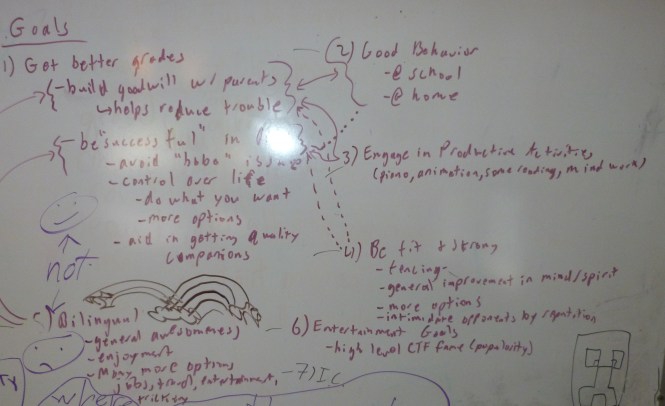 Goals
1) Get better grades
- build goodwill w/ parents
↳ helps reduce trouble
- be "successful" in
- avoid "hobo" issue
- control over life
- do what you want
- more options
- aid in getting quality
companions
(2) Good Behavior
- @ school
- @ home
3) Engage in Productive Activities
(piano, animation, some reading, mind work)
4) Be fit & strong
- fencing
- general improvement in mind/spirit
- more options
- intimidate opponents by reputation
not
5) Bilingual
- general awesomeness
- enjoyment
- many more options
jobs, travel, entertainment,
6) Entertainment Goals
- high level CTF fame (popularity)
- 7) IC
TY